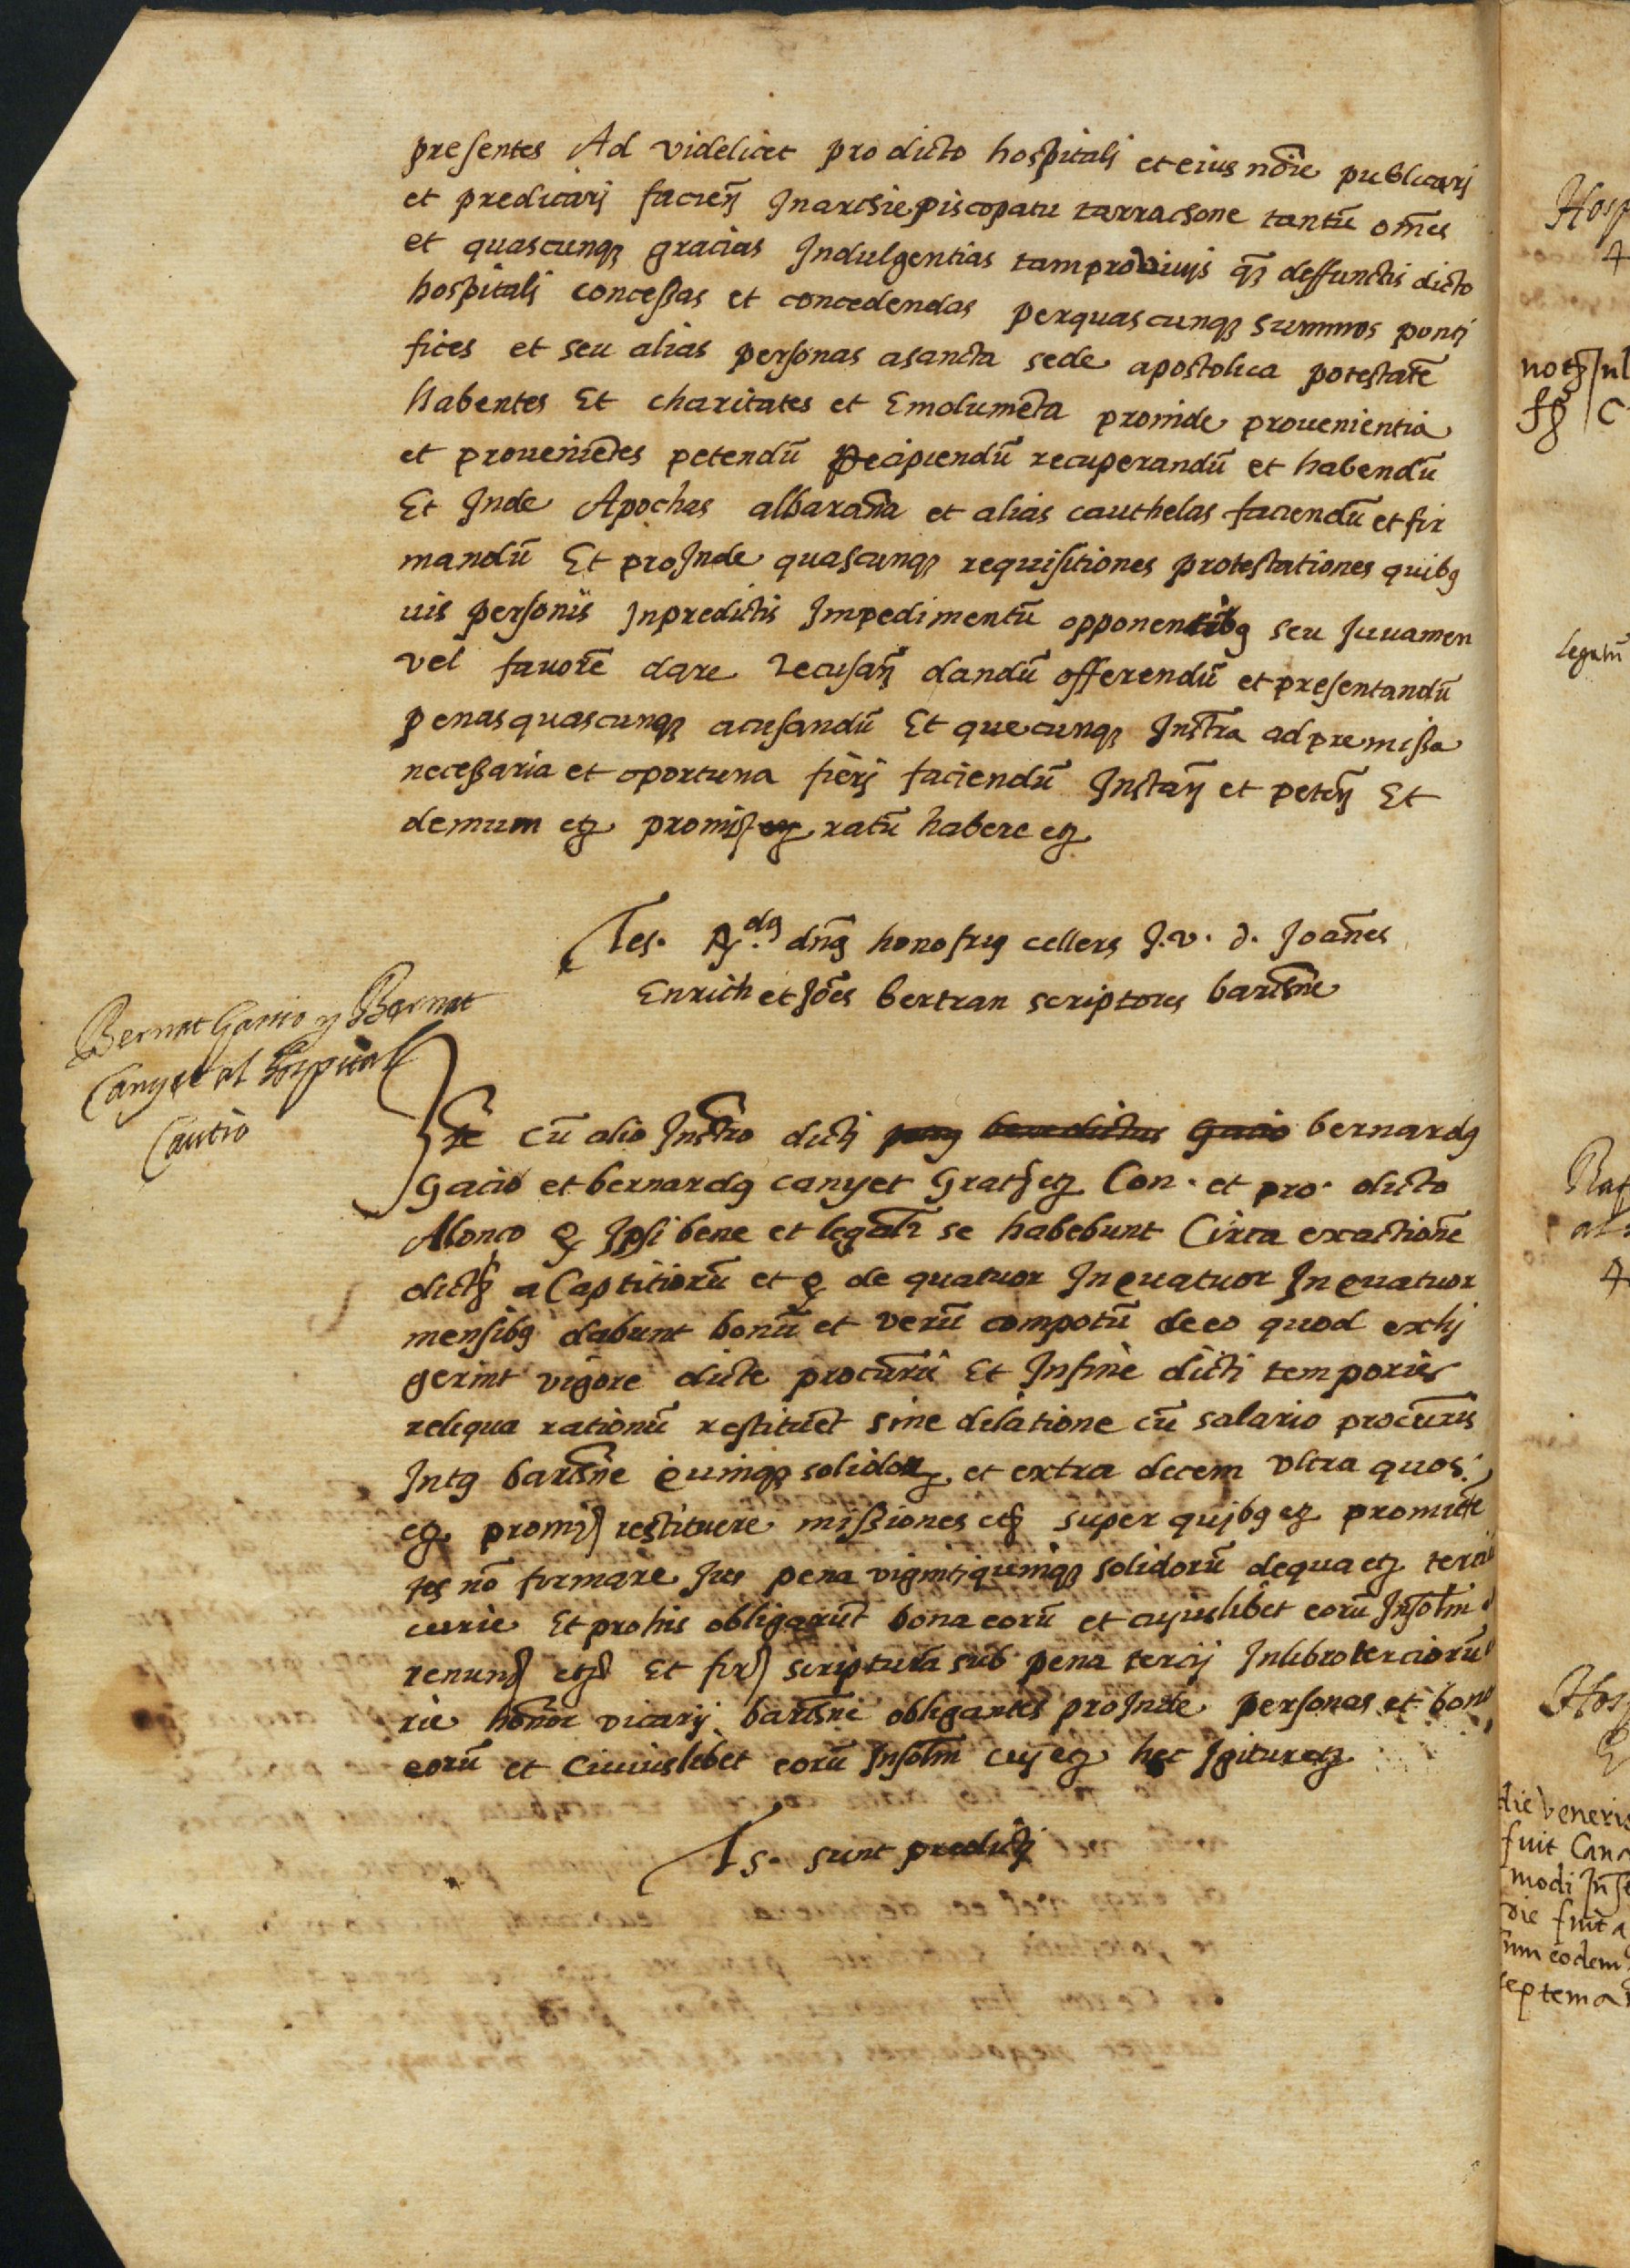 presentes Ad videlicet pro dicto hospitalj et eius nōie publicarj
et predicarj facieñ Inarchiepiscopatu tarrachone tantū om̄es
et quascunqȝ gracias Indulgentias tam pro viujs qȝ deffunctis dicto
hospitalj concessas et concedendas perquascunqȝ summos pontj
fices et seu alias personas asancta sede apostolica potestatē
habentes Et charitates et Emolumēta proinde prouenientia
et proueniētes petendū Recipiendū recuperandū et habendū
Et Inde Apochas albarana et alias cauthelas faciendū et fir
mandū Et proInde quascunqȝ requisitiones protestationes quibȝ
uis personis Inpredictis Impedimentū opponentibȝ seu Iuuamen
vel fauorē dare recusañ dandū offerendū et presentandū
penas quascunqȝ acusandū Et quecunqȝ Instra ad premissa
necessaria et oportuna fierj faciendū Instañ et peteñ Et
demum etȝ promiß ratū habere etȝ
Tes. Rdꝰ dn̄s honofrȝ cellers J. v. d. Joānes
Enrich et Jōes bertran scriptores barchn̄e
Bernat Gacio y Bernat
Canyet al hospital
Cautio
Ite cū alio Instro dictj benedictus Gacio bernardȝ
Gacio et bernardȝ canyet Gratȝ etȝ Con. et pro. dicto
Alonco q̨ Ipsi bene et legalr se habebunt Circa exactionē
dictȝ a Captitiorū et q̨ de quatuor In quatuor In quatuor
mensibȝ dabunt bonū et verū compotū deeo quod exhj
gerint vigore dicte procur̄ii Et Infine dicti temporis
reliqua rationū restituēt sine dilatione cū salario procur̄is
Intȝ barchn̄e quinqȝ solidoꝝ et extra decem vltra quos
etȝ promiß restituere missiones etȝ super quibȝ etȝ promictē
tes nō firmare Jus pena viginti quinqȝ solidorū dequa etȝ tercii
curie Et pro his obligarūt bona eorū et cujuslibet eorū Insolm̄
renunß etȝ Et firß scriptura sub pena tercij Inlibro terciorū
rie honor vicarij barchn̄e obligantes proInde personas et bona
eorū et Cuiuslibet eorū Insolm̄ etȝ hec Igitur etȝ
Ts. sunt predictj